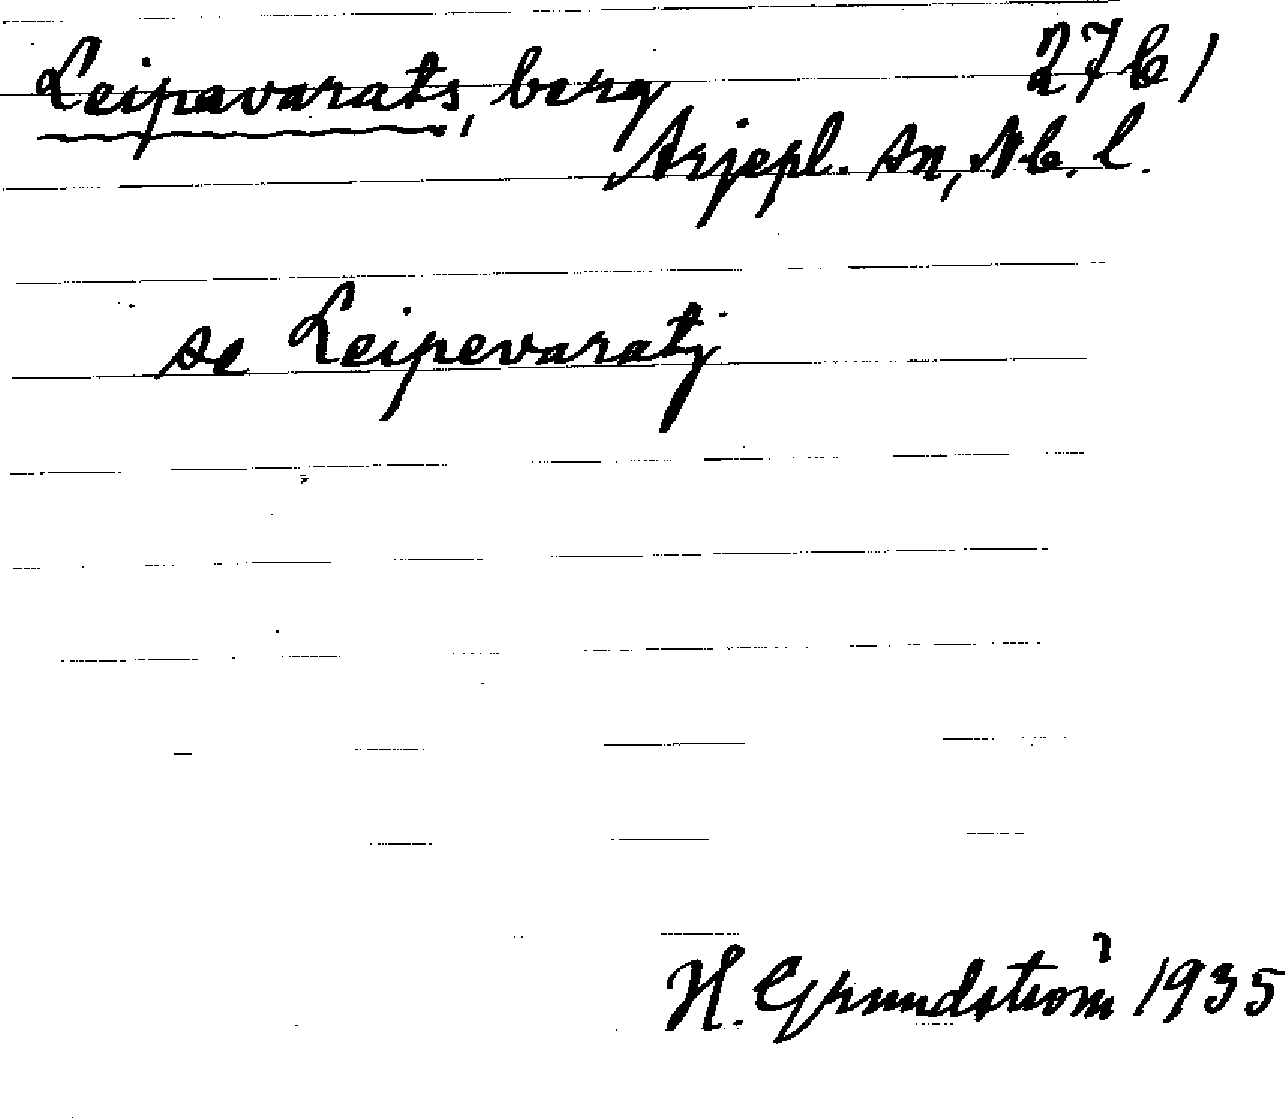 Leipavarats, berg 27b1
Arjepl. sn, Nb. l.
se Leipevaratj
H. Grundström 1935